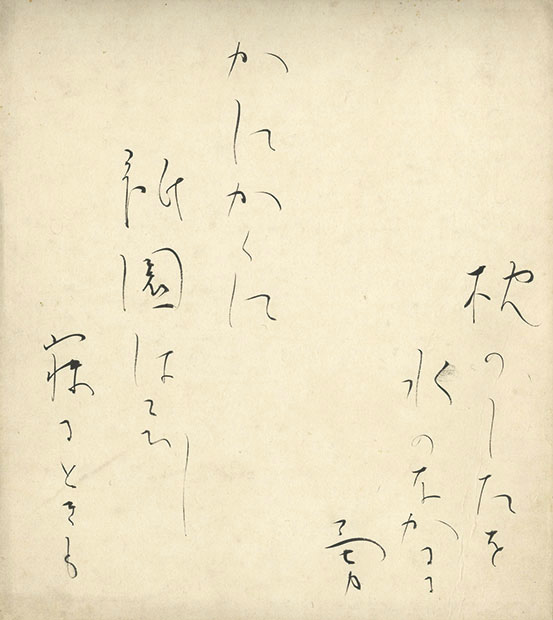 かにかくに
祇園はこひし
寐るときも
枕のしたを
水のなかるる
勇